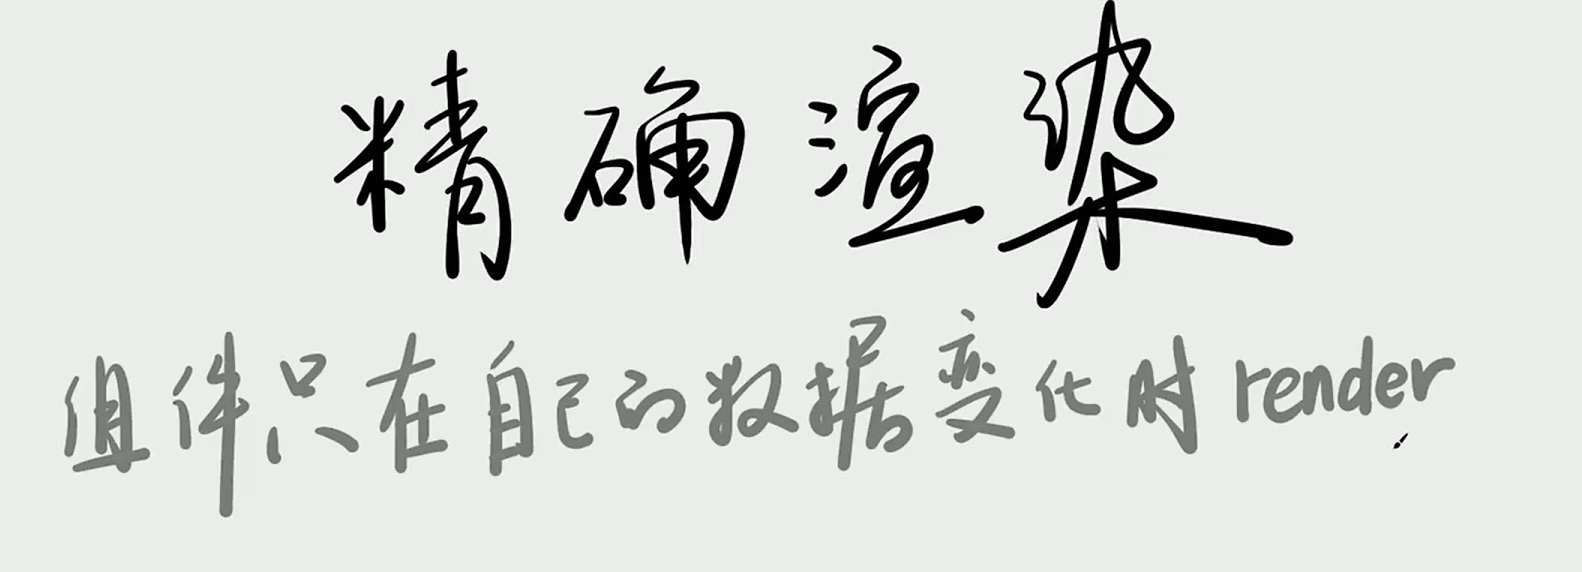 精确渲染
组件只在自己的数据变化时render